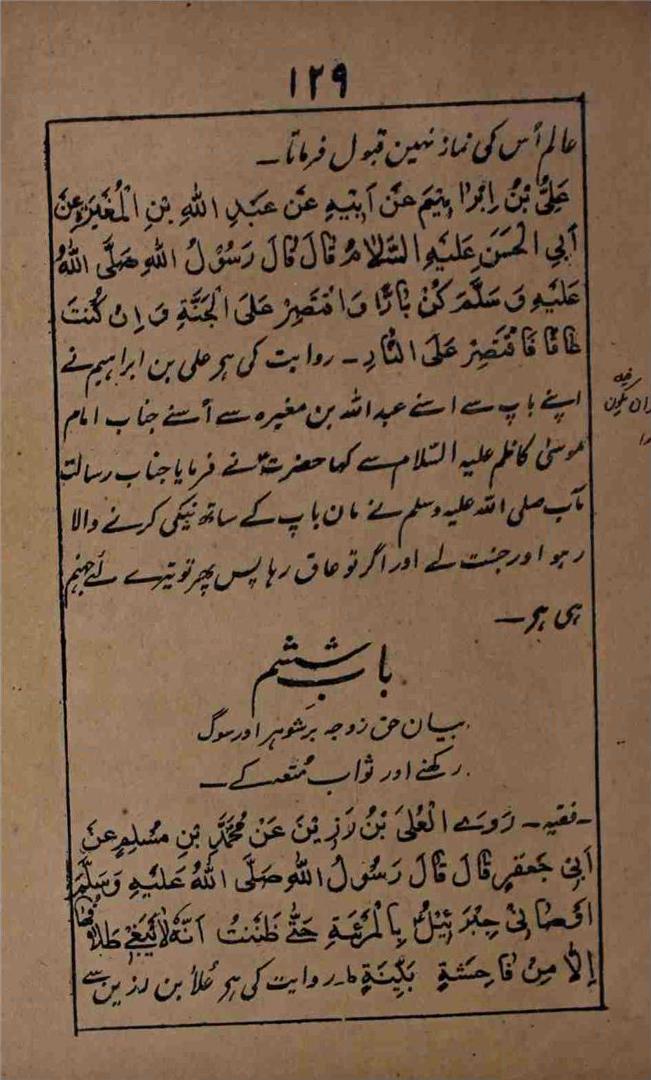 ۱۲۹
عالم اُس کی نماز نہین قبول فرماتا۔
عَلِیُّ بْنُ اِبْرَاہِیْمَ عَنْ اَبِیْہِ عَنْ عَبْدِ اللہِ بْنِ الْمُغِیْرَۃِ عَنْ
اَبِی الْحَسَنِ عَلَیْہِ السَّلَامُ قَالَ قَالَ رَسُوْلُ اللہِ صَلَّی اللہُ
عَلَیْہِ وَسَلَّمَ کُنْ بَارًّا وَاقْتَصِرْ عَلَی الْجَنَّۃِ وَاِنْ کُنْتَ
عَاقًّا فَاقْتَصِرْ عَلَی النَّارِ۔ روایت کی ہر علی بن ابراہیم نے
اپنے باپ سے اسنے عبد اللہ بن مغیرہ سے اُسنے جناب امام
موسیٰ کاظم علیہ السّلام سے کہا حضرت نے فرمایا جناب رسالت
مآب صلی اللہ علیہ وسلم نے مان باپ کے ساتھ نیکی کرنے والا
رہو اور جنت لے اور اگر تو عاق رہا پس پھر تو تیرے لئے جہنم
ہی ہر۔
باب ششم
بیان حق زوجہ بر شوہر اور سوگ
رکھنے اور ثواب مُتعہ کے۔
۔فقیہ۔ رَوٰے الْعُلَیٰ بْنُ رَزِیْن عَنْ مُحَمَّدِ بْنِ مُسْلِمٍ عَنْ
اَبِیْ جَعْفَرٍ قَالَ قَالَ رَسُوْلُ اللہِ صَلَّی اللہُ عَلَیْہِ وَسَلَّمَ
اَوْصَانِیْ جِبْرَئِیْلُ بِالْمَرْئَۃِ حَتّٰی ظَنَنْتُ اَنَّہٗ لَا یَنْبَغِیْ طَلَاقُہَا
اِلَّا مِنْ فَاحِشَۃٍ بَیِّنَۃٍ ط۔ روایت کی ہر عُلأ بن رزین سے